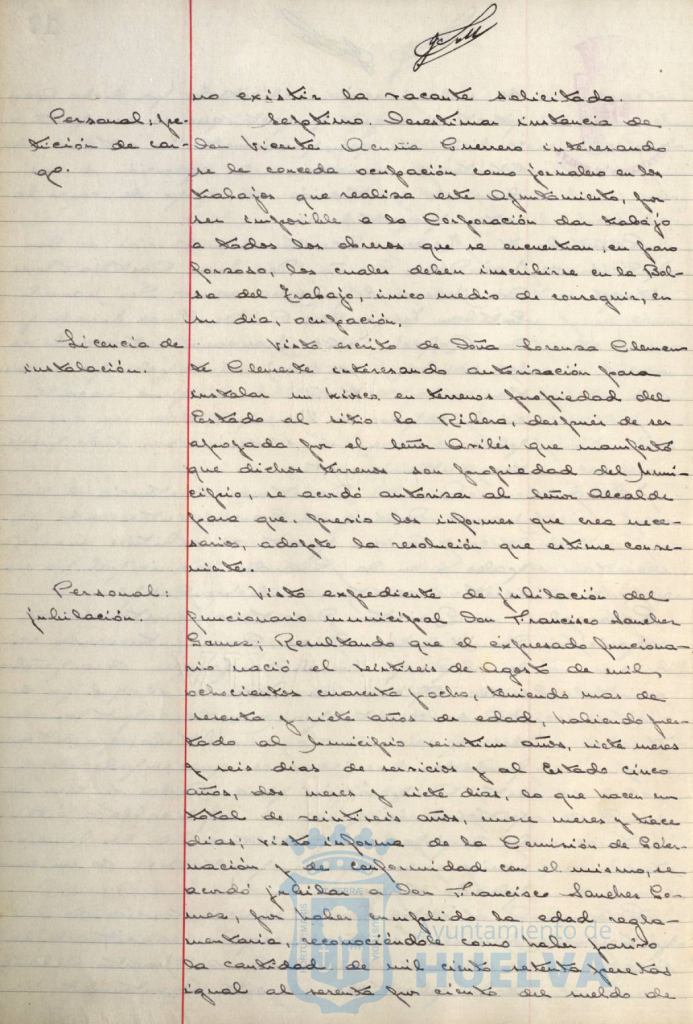 no existir la vacante solicitada.
Personal: pe-
tición de car-
go.
Septimo. Desestimar instancia de
Don Vicente Acuña Guerrero interesando
se le conceda ocupación como jornalero en los
trabajos que realiza este Ayuntamiento, por
ser imposible a la Corporación dar trabajo
a todos los obreros que se encuentran en paro
forzoso, los cuales deben inscribirse en la Bol-
sa del Trabajo, único medio de conseguir, en
su día, ocupación.
Licencia de
instalación.
Visto escrito de Doña Lorenza Clemen-
te Clemente interesando autorización para
instalar un kiosco en terrenos propiedad del
Estado al sitio la Ribera, después de ser
apoyada por el Señor Avilés que manifestó
que dichos terrenos son propiedad del Muni-
cipio, se acordó autorizar al Señor Alcalde
para que, previo los informes que crea nece-
sarios, adopte la resolución que estime conve-
niente.
Personal:
jubilación.
Visto expediente de jubilación del
funcionario municipal Don Francisco Sanchez
Gomez; Resultando que el expresado funciona-
rio nació el veintiseis de Agosto de mil
ochocientos cuarenta y ocho, teniendo mas de
sesenta y siete años de edad, habiendo pres-
tado al Municipio veintiun años, siete meses
y seis dias de servicios y al Estado cinco
años, dos meses y siete dias, lo que hacen un
total de veintiseis años, nueve meses y trece
dias; visto informe de la Comisión de Gober-
nación y de conformidad con el mismo, se
acordó jubilar a Don Francisco Sanchez Go-
mez, por haber cumplido la edad regla-
mentaria, reconociéndole como haber pasivo
la cantidad de mil ciento setenta pesetas
igual al sesenta por ciento del sueldo de
Ayuntamiento de
HUELVA